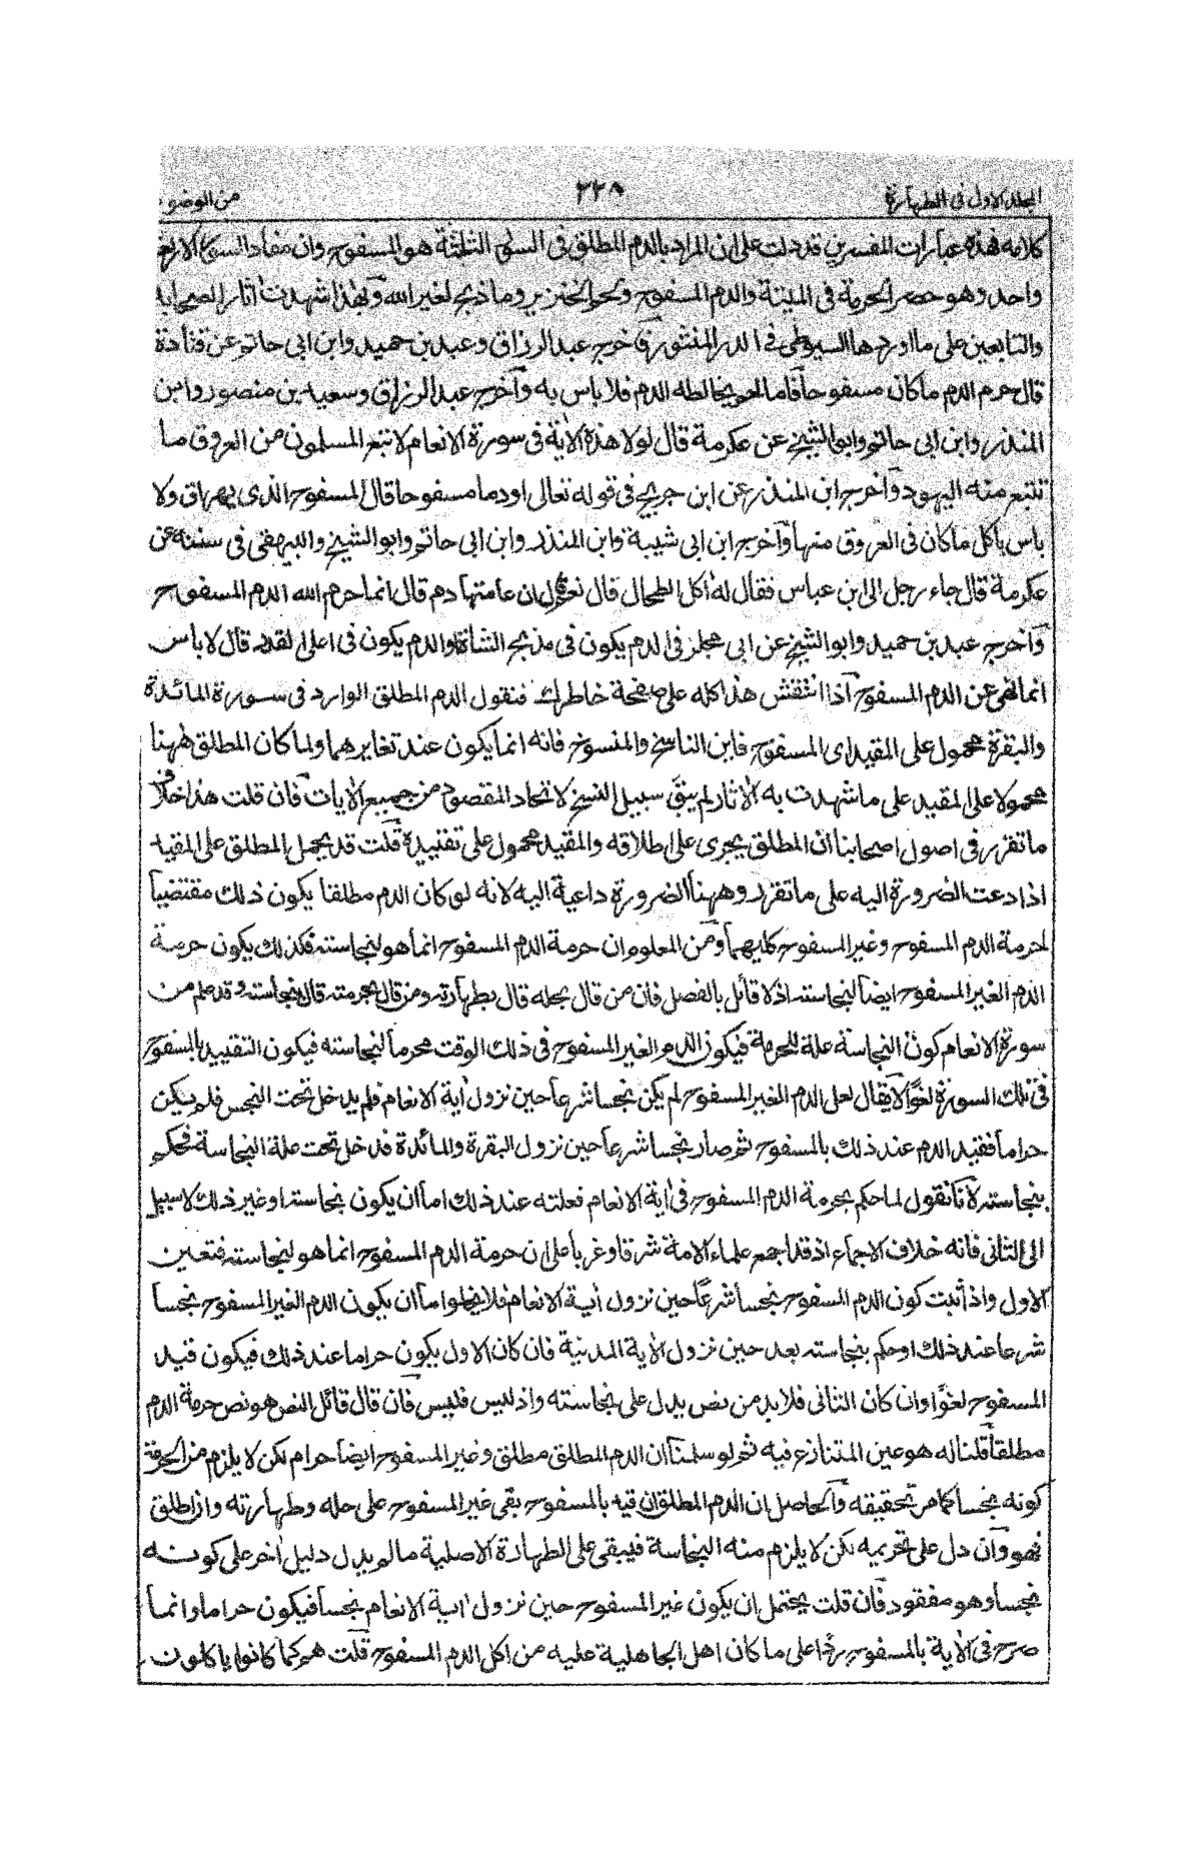 المجلد الاول فى الطهارة
٢٢٨
من الوضوء
كلامه فهذه عبارات المفسرين قد دلت على ان المراد بالدم المطلق فى السور الثلثة هو المسفوح وان مفاد السور الاربع
واحد وهو حصر الحرمة فى الميتة والدم المسفوح ولحم الخنزير وما ذبح لغير الله وبهذا شهدت اثار الصحابة
والتابعين على ما اوردها السيوطى فى الدر المنثور فاخرج عبد الرزاق وعبد بن حميد وابن ابى حاتم عن قتادة
قال حرم الدم ما كان مسفوحا فاما لحم يخالطه الدم فلا باس به وآخرج عبد الرزاق وسعيد بن منصور وابن
المنذر وابن ابى حاتم وابو الشيخ عن عكرمة قال لولا هذه الاية فى سورة الانعام لاتبع المسلمون من العروق ما
تتبع منه اليهود وآخرج ابن المنذر عن ابن جريج فى قوله تعالى او دما مسفوحا قال المسفوح الذى يهراق ولا
باس باكل ما كان فى العروق منها وآخرج ابن ابى شيبة وابن المنذر وابن ابى حاتم وابو الشيخ والبيهقى فى سننه عن
عكرمة قال جاء رجل الى ابن عباس فقال له اكل الطحال قال نعم قال ان عامتها دم قال انما حرم الله الدم المسفوح
وآخرج عبد بن حميد وابو الشيخ عن ابى مجلز فى الدم يكون فى مذبح الشاة والدم يكون فى اعلى القدر قال لا باس
انما نهى عن الدم المسفوح آذا انتقش هذا كله على صفحة خاطرك فنقول الدم المطلق الوارد فى سورة المائدة
والبقرة محمول على المقيد اى المسفوح فاين الناسخ والمنسوخ فانه انما يكون عند تغايرهما ولما كان المطلق ههنا
محمولا على المقيد على ما شهدت به الاثار لم يبق سبيل النسخ لاتحاد المقصود من جميع الايات فآن قلت هذا خلاف
ما تقرر فى اصول اصحابنا ان المطلق يجرى على اطلاقه والمقيد محمول على تقييده قلت قد يحمل المطلق على المقيد
اذا دعت الضرورة اليه على ما تقرر وههنا الضرورة داعية اليه لانه لو كان الدم مطلقا يكون ذلك مقتضيا
لحرمة الدم المسفوح وغير المسفوح كليهما ومن المعلوم ان حرمة الدم المسفوح انما هو لنجاسته فكذلك يكون حرمة
الدم الغير المسفوح ايضا لنجاسته اذ لا قائل بالفصل فان من قال بحله قال بطهارته ومن قال بحرمته قال بنجاسته وقد علم من
سورة الانعام كون النجاسة علة للحرمة فيكون الدم الغير المسفوح فى ذلك الوقت محرما لنجاسته فيكون التقييد بالمسفوح
فى تلك السورة لغوا لآيقال لعل الدم الغير المسفوح لم يكن نجسا شرعا حين نزول اية الانعام فلم يدخل تحت النجس فلم يكن
حراما فقيد الدم عند ذلك بالمسفوح ثم صار نجسا شرعا حين نزول البقرة والمائدة فدخل تحت علة النجاسة فحكم
بنجاسته لآنا نقول لما حكم بحرمة الدم المسفوح فى اية الانعام فعلته عند ذلك اما ان يكون نجاسته او غير ذلك لا سبيل
الى الثانى فانه خلاف الاجماع اذ قد اجمع علماء الامة شرقا وغربا على ان حرمة الدم المسفوح انما هو لنجاسته فتعين
الاول واذ ثبت كون الدم المسفوح نجسا شرعا حين نزول اية الانعام فلا يخلوا ما ان يكون الدم الغير المسفوح نجسا
شرعا عند ذلك او حكم بنجاسته بعد حين نزول الاية المدنية فان كان الاول يكون حراما عند ذلك فيكون قيد
المسفوح لغوا وان كان الثانى فلا بد من نص يدل على نجاسته واذ ليس فليس فآن قال قائل النص هو نص حرمة الدم
مطلقا قلنا له هو عين المتنازع فيه ثم لو سلمنا ان الدم المطلق مطلق وغير المسفوح ايضا حرام لكن لا يلزم من الحرمة
كونه نجسا كما مر تحقيقه وآلحاصل ان الدم المطلق ان قيد بالمسفوح بقى غير المسفوح على حله وطهارته وان اطلق
فهو وآن دل على تحريمه لكن لا يلزم منه النجاسة فيبقى على الطهارة الاصلية ما لم يدل دليل اخر على كونه
نجسا وهو مفقود فآن قلت يحتمل ان يكون غير المسفوح حين نزول اية الانعام نجسا فيكون حراما وانما
صرح فى الاية بالمسفوح ردا على ما كان اهل الجاهلية عليه من اكل الدم المسفوح قلت هم كما كانوا ياكلون